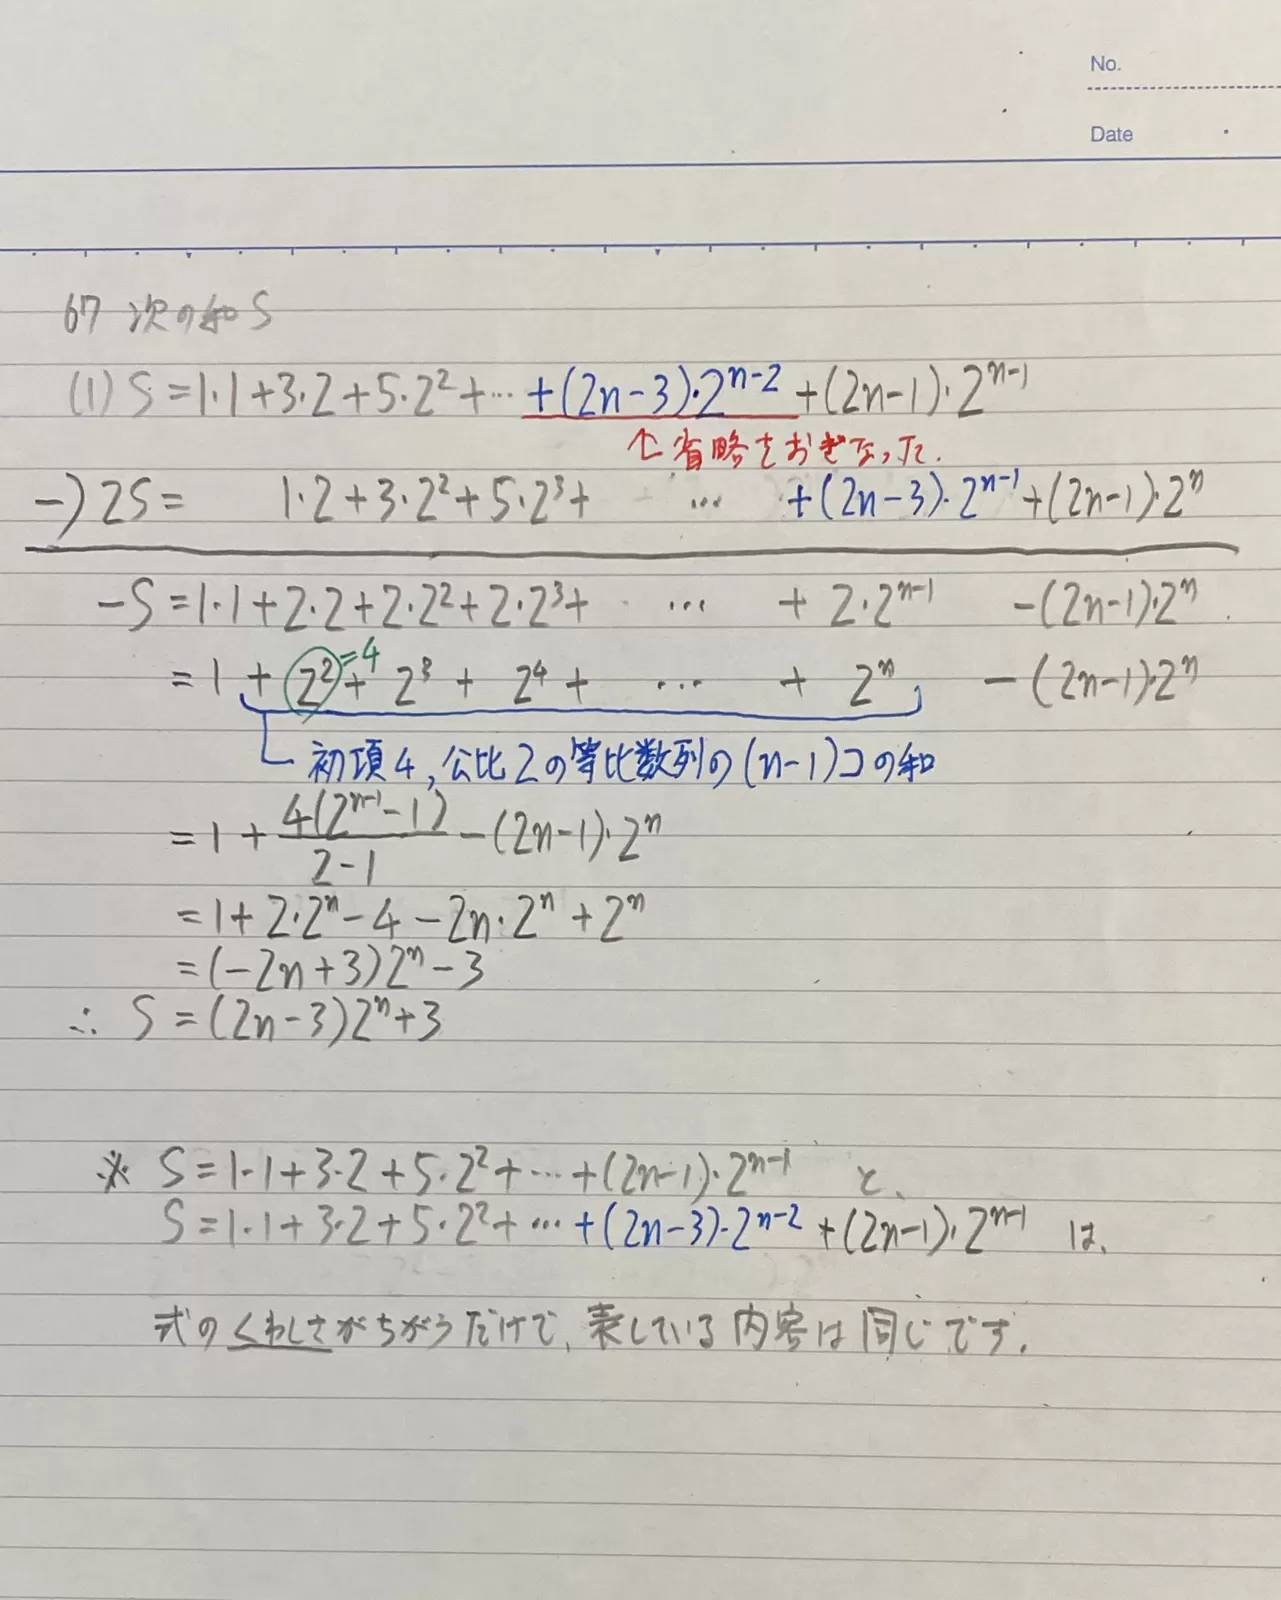 No.
Date
67 次の和S
(1) S=1・1+3・2+5・2²+…+(2n-3)・2ⁿ⁻²+(2n-1)・2ⁿ⁻¹
↑省略をおぎなった.
-) 2S= 1・2+3・2²+5・2³+ … +(2n-3)・2ⁿ⁻¹+(2n-1)・2ⁿ
-S=1・1+2・2+2・2²+2・2³+ … +2・2ⁿ⁻¹ -(2n-1)・2ⁿ
=1+2²+2³+2⁴+ … +2ⁿ -(2n-1)2ⁿ
=4
初項4,公比2の等比数列の(n-1)コの和
=1+4(2ⁿ⁻¹-1)/(2-1)-(2n-1)・2ⁿ
=1+2・2ⁿ-4-2n・2ⁿ+2ⁿ
=(-2n+3)2ⁿ-3
∴ S=(2n-3)2ⁿ+3
※ S=1・1+3・2+5・2²+…+(2n-1)・2ⁿ⁻¹ と、
S=1・1+3・2+5・2²+…+(2n-3)・2ⁿ⁻²+(2n-1)・2ⁿ⁻¹ は、
式のくわしさがちがうだけで,表している内容は同じです.